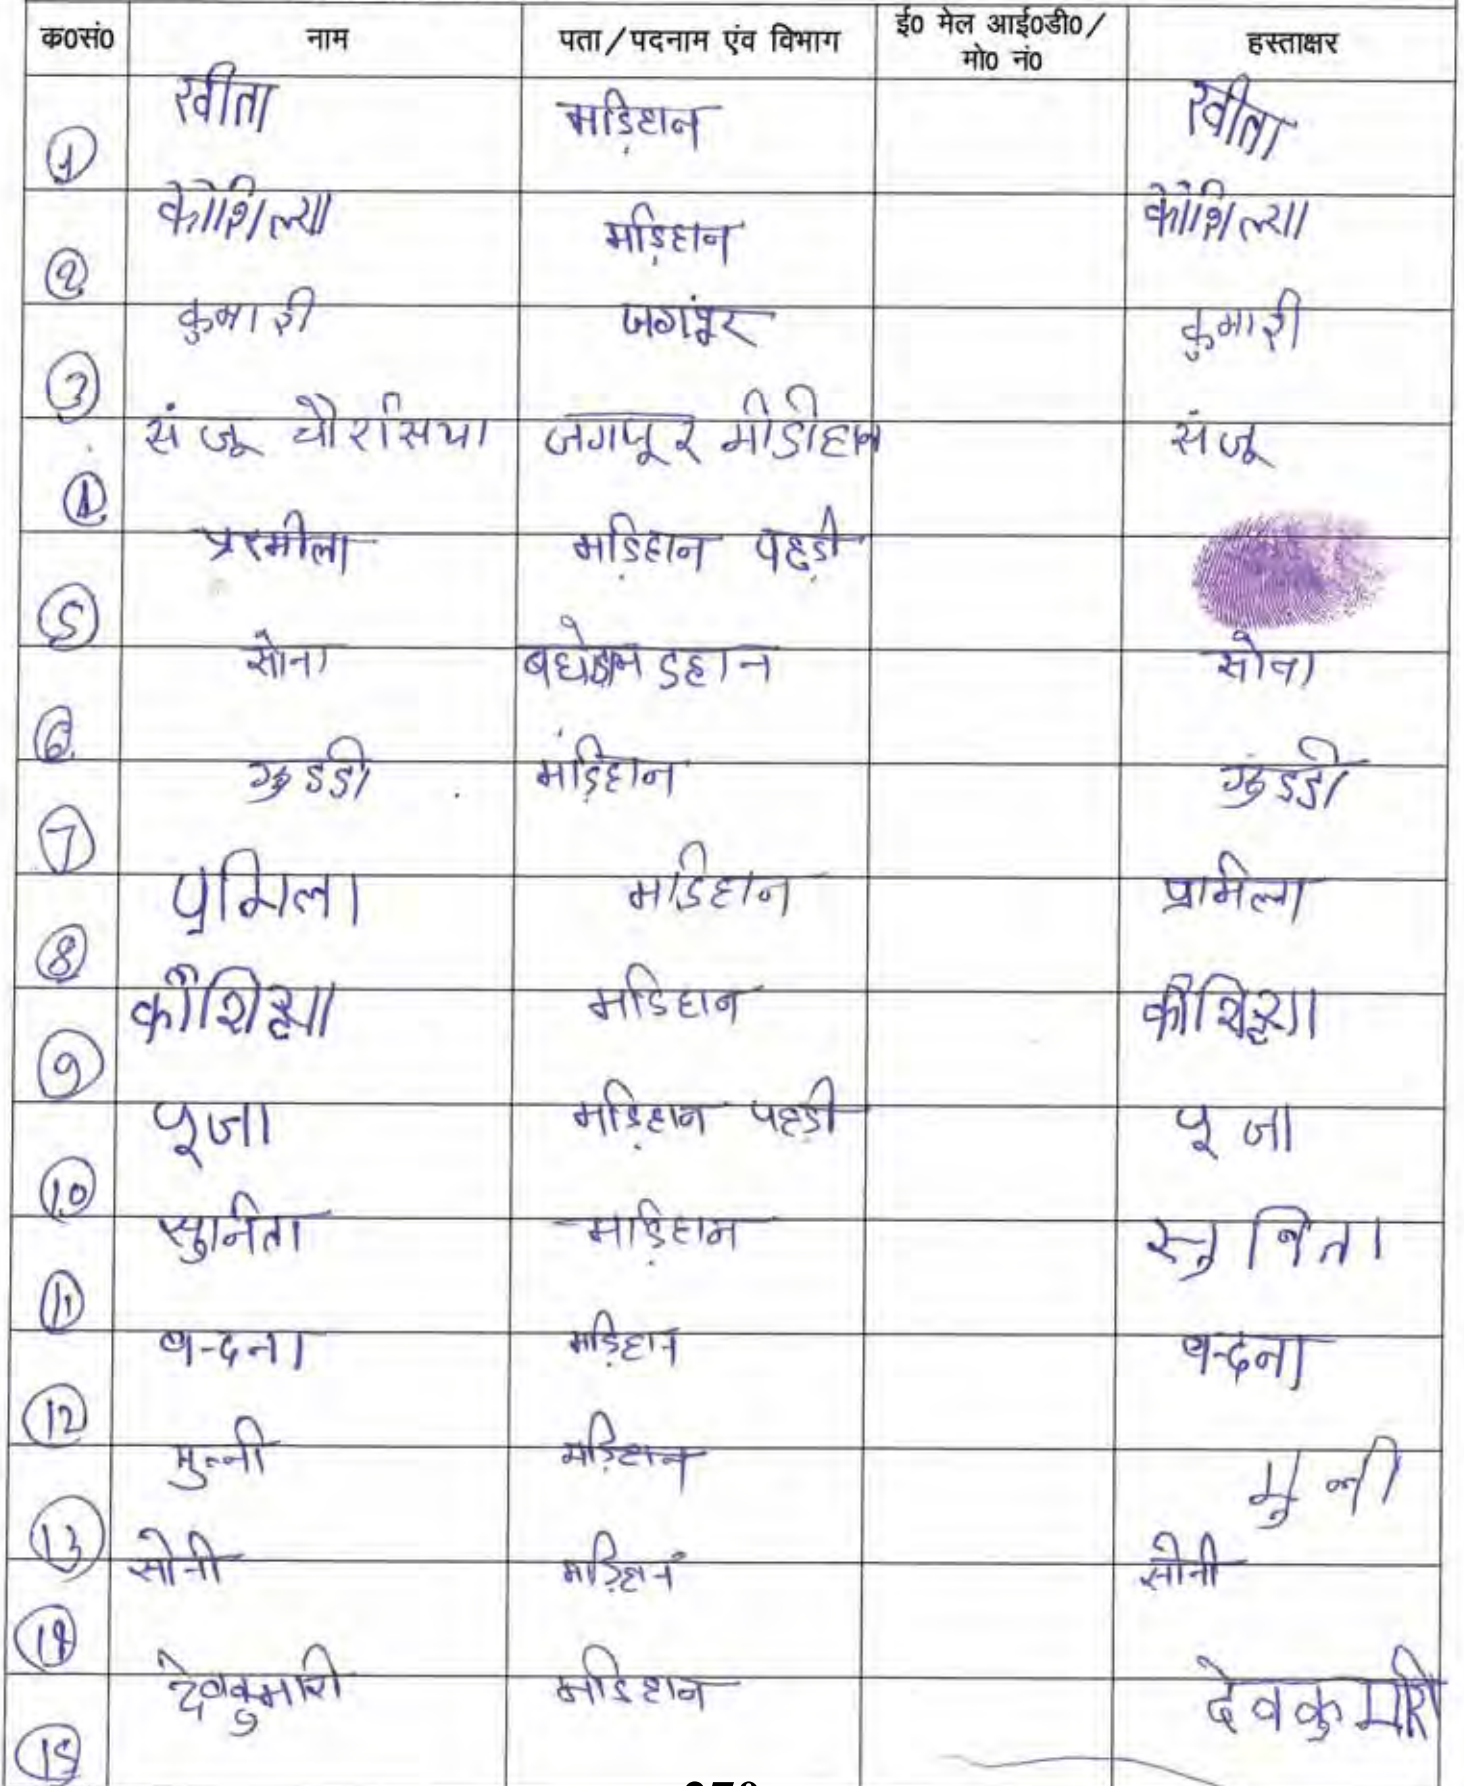 क0सं0 नाम पता/पदनाम एंव विभाग ई0 मेल आई0डी0/ मो0 नं0 हस्ताक्षर
1 रवीता मड़िहान रवीता
2 कौशिल्या मड़िहान कौशिल्या
3 कुमारी जगंपूर कुमारी
4 संजू चौरसिया जगपूर मीडीहान संजू
5 प्ररमीला मड़िहान पहड़ी
6 सोना सोना
7 गुडडी मड़िहान गुडडी
8 प्रमिला मडिहान प्रमिला
9 कौशिल्या मडिहान
10 पूजा मड़िहान पहडी पूजा
11 सुनिता मड़िहान सुनिता
12 बन्दना मड़िहान बन्दना
13 मुन्नी मड़िहान मुन्नी
14 सोनी मड़िहान सोनी
15 देवकुमारी मडिहान देवकुमारी